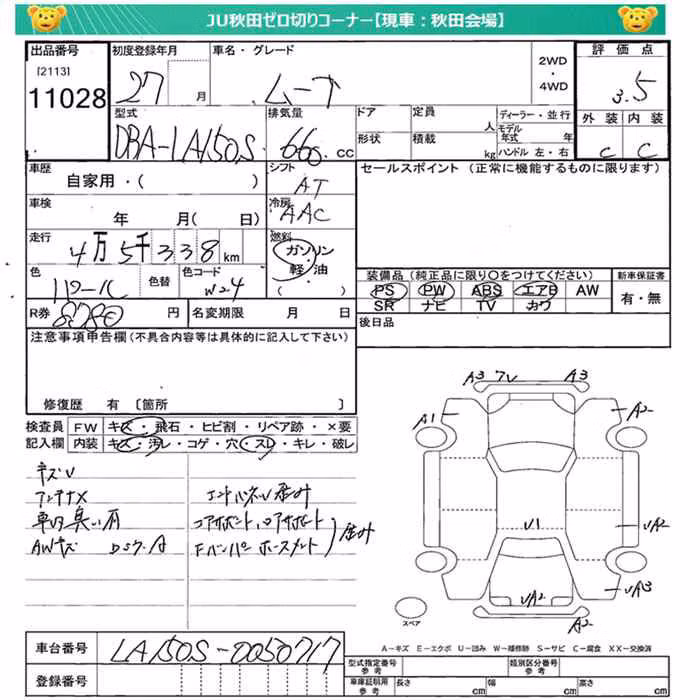 JU秋田ゼロ切りコーナー【現車：秋田会場】
出品番号 初度登録年月 車名・グレード 2WD・4WD 評価点
[2113]
11028 27 月 ムーヴ 3.5
型式 排気量 ドア 定員 人 ディーラー・並行 外装 内装
DBA-LA150S 660 cc 形状 積載 kg モデル年式 年 ハンドル 左・右 C C
車歴 シフト セールスポイント（正常に機能するものに限ります）
自家用・（ ） AT
車検 冷房
年 月（ 日） AAC
走行 燃料
4万5千338km ガソリン・軽・油
色 色替 色コード （ ） 装備品（純正品に限り〇をつけてください） 新車保証書
パール W24 PS PW ABS エアB AW 有・無
SR ナビ TV カワ
R券 8780 円 名変期限 月 日 後日品
注意事項申告欄（不具合内容等は具体的に記入して下さい）
修復歴 有 〔箇所 〕
検査員 FW キズ・飛石・ヒビ割・リペア跡・×要
記入欄 内装 キズ・汚レ・コゲ・穴・スレ・キレ・破レ
キズU
アンテナX エンドパネルU 歪み
車内臭い有 コアサポート、ロアサポート
AWキズ Fバンパーホースメント 歪み
A3 フU A3
A1 A2
U1 UA2
UA2 UA3
A2
スペア
A－キズ E－エクボ U－凹み W－補修跡 S－サビ C－腐食 XX－交換済
車台番号 LA150S-0050717
登録番号
型式指定番号 参考 類別区分番号 参考
車庫証明用 参考 長さ cm 幅 cm 高さ cm